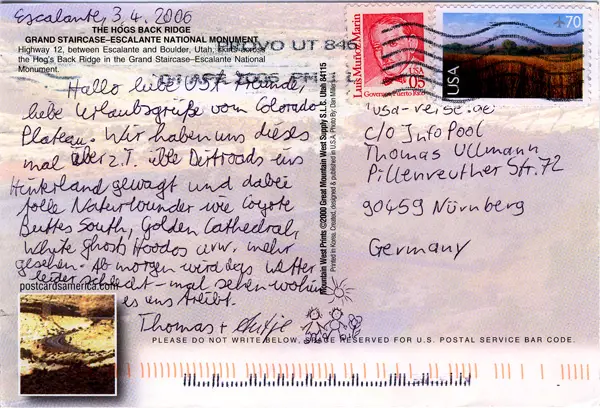 Escalante, 3.4.2006
THE HOGS BACK RIDGE
GRAND STAIRCASE–ESCALANTE NATIONAL MONUMENT
Highway 12, between Escalante and Boulder, Utah, across
the Hog's Back Ridge in the Grand Staircase–Escalante National
Monument.
PROVO UT 846
2006 PM
Hallo liebe USA-Freunde,
liebe Urlaubsgrüße vom Colorado
Plateau. Wir haben uns dieses
mal aber z.T. üble Dirtroads ins
Hinterland gewagt und dabei
tolle Naturwunder wie Coyote
Buttes South, Golden Cathedral,
White Ghosts Hoodos usw. mehr
gesehen. Ab morgen wird das Wetter
leider schlecht - mal sehen wohin
es uns treibt.
Thomas + Antje
postcardsamerica.com
Mountain West Prints ©2000 Great Mountain West Supply S.L.C. Utah 84115
Printed in Korea. Created, designed & published in U.S.A. Photo By: Dan
Luis Muñoz Marín
Governor, Puerto Rico
05
USA
70
usa-reise.de
c/o InfoPool
Thomas Ullmann
Pillenreuther Str. 72
90459 Nürnberg
Germany
PLEASE DO NOT WRITE BELOW, SPACE RESERVED FOR U.S. POSTAL SERVICE BAR CODE.